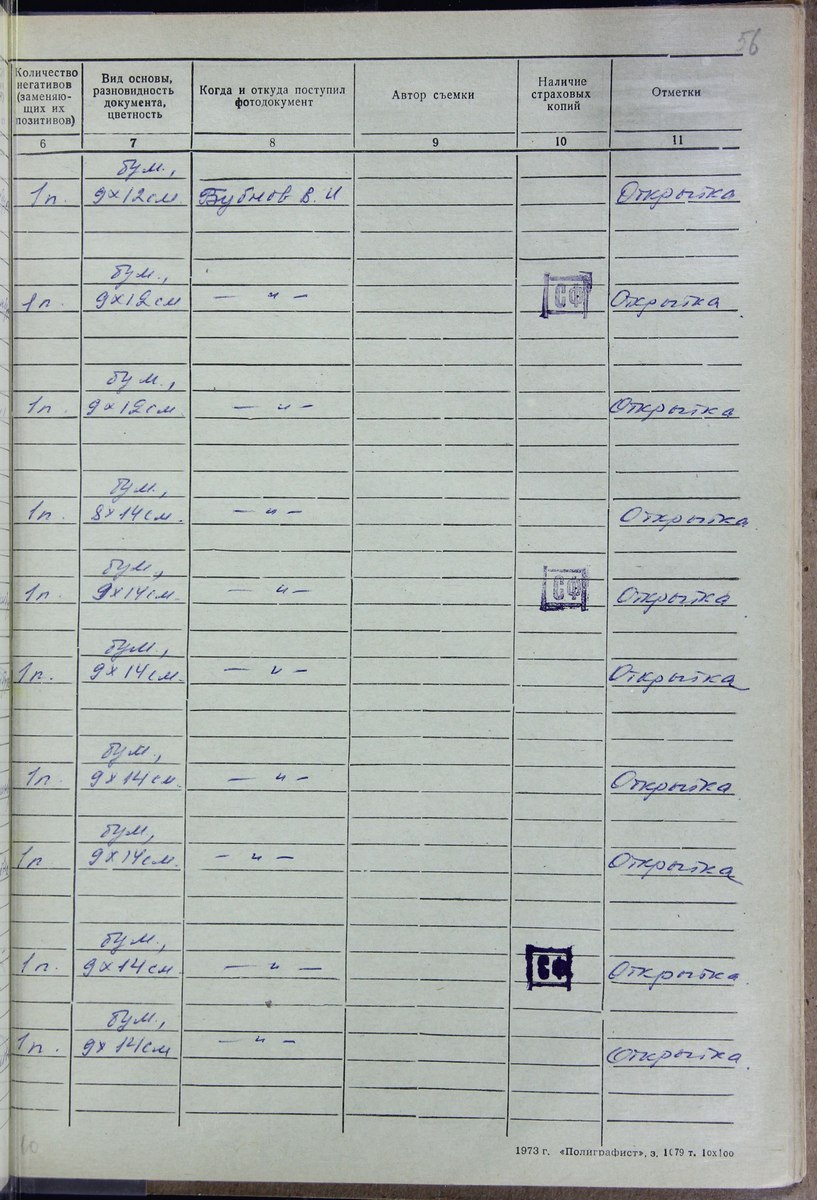 56
Количество негативов (заменяю- щих их позитивов)
Вид основы, разновидность документа, цветность
Когда и откуда поступил фотодокумент
Автор съемки
Наличие страховых копий
Отметки
6 7 8 9 10 11
бум.,
1п. 9х12см. Бубнов В. И Открытка
бум.,
1п. 9х12см — " — СФ Открытка
бум.,
1п. 9х12см. — " — Открытка
бум.,
1п. 8х14см. — " — Открытка
бум.,
1п. 9х14см. — " — СФ Открытка
бум.,
1п. 9х14см. — " — Открытка
бум.,
1п. 9х14см. — " — Открытка
бум.,
1п 9х14см. — " — Открытка
бум.,
1п. 9х14см. — " — СФ Открытка
бум.,
1п. 9х14см — " — Открытка.
1973 г. «Полиграфист», з. 1079 т. 10х100